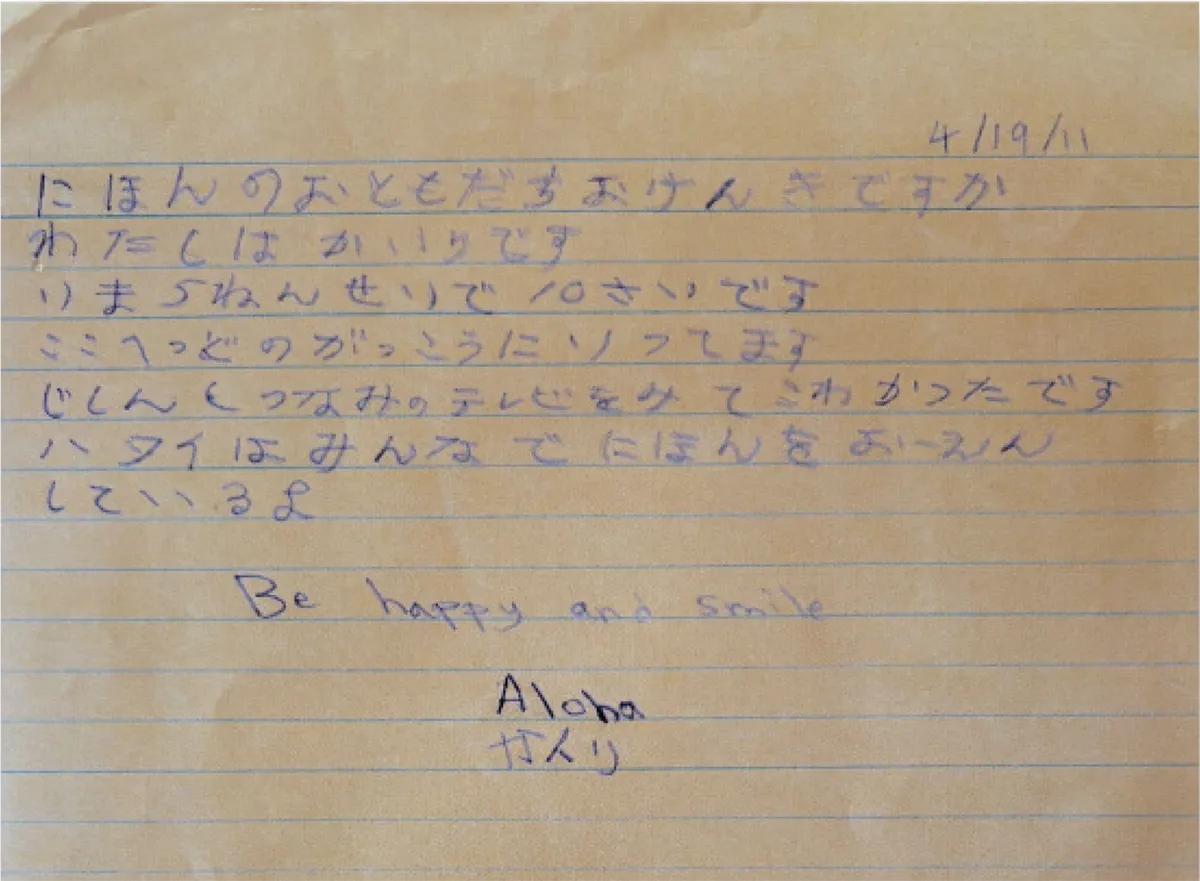 4/19/11
にほんのおともだちおけんきですか
わたしは かいりです
いま5ねんせいで 10さいです
ここへっどのがっこうにいってます
じしんとつなみのテレビをみて こわかったです
ハワイはみんなで にほんを おーえん
しているよ
Be happy and smile
Aloha